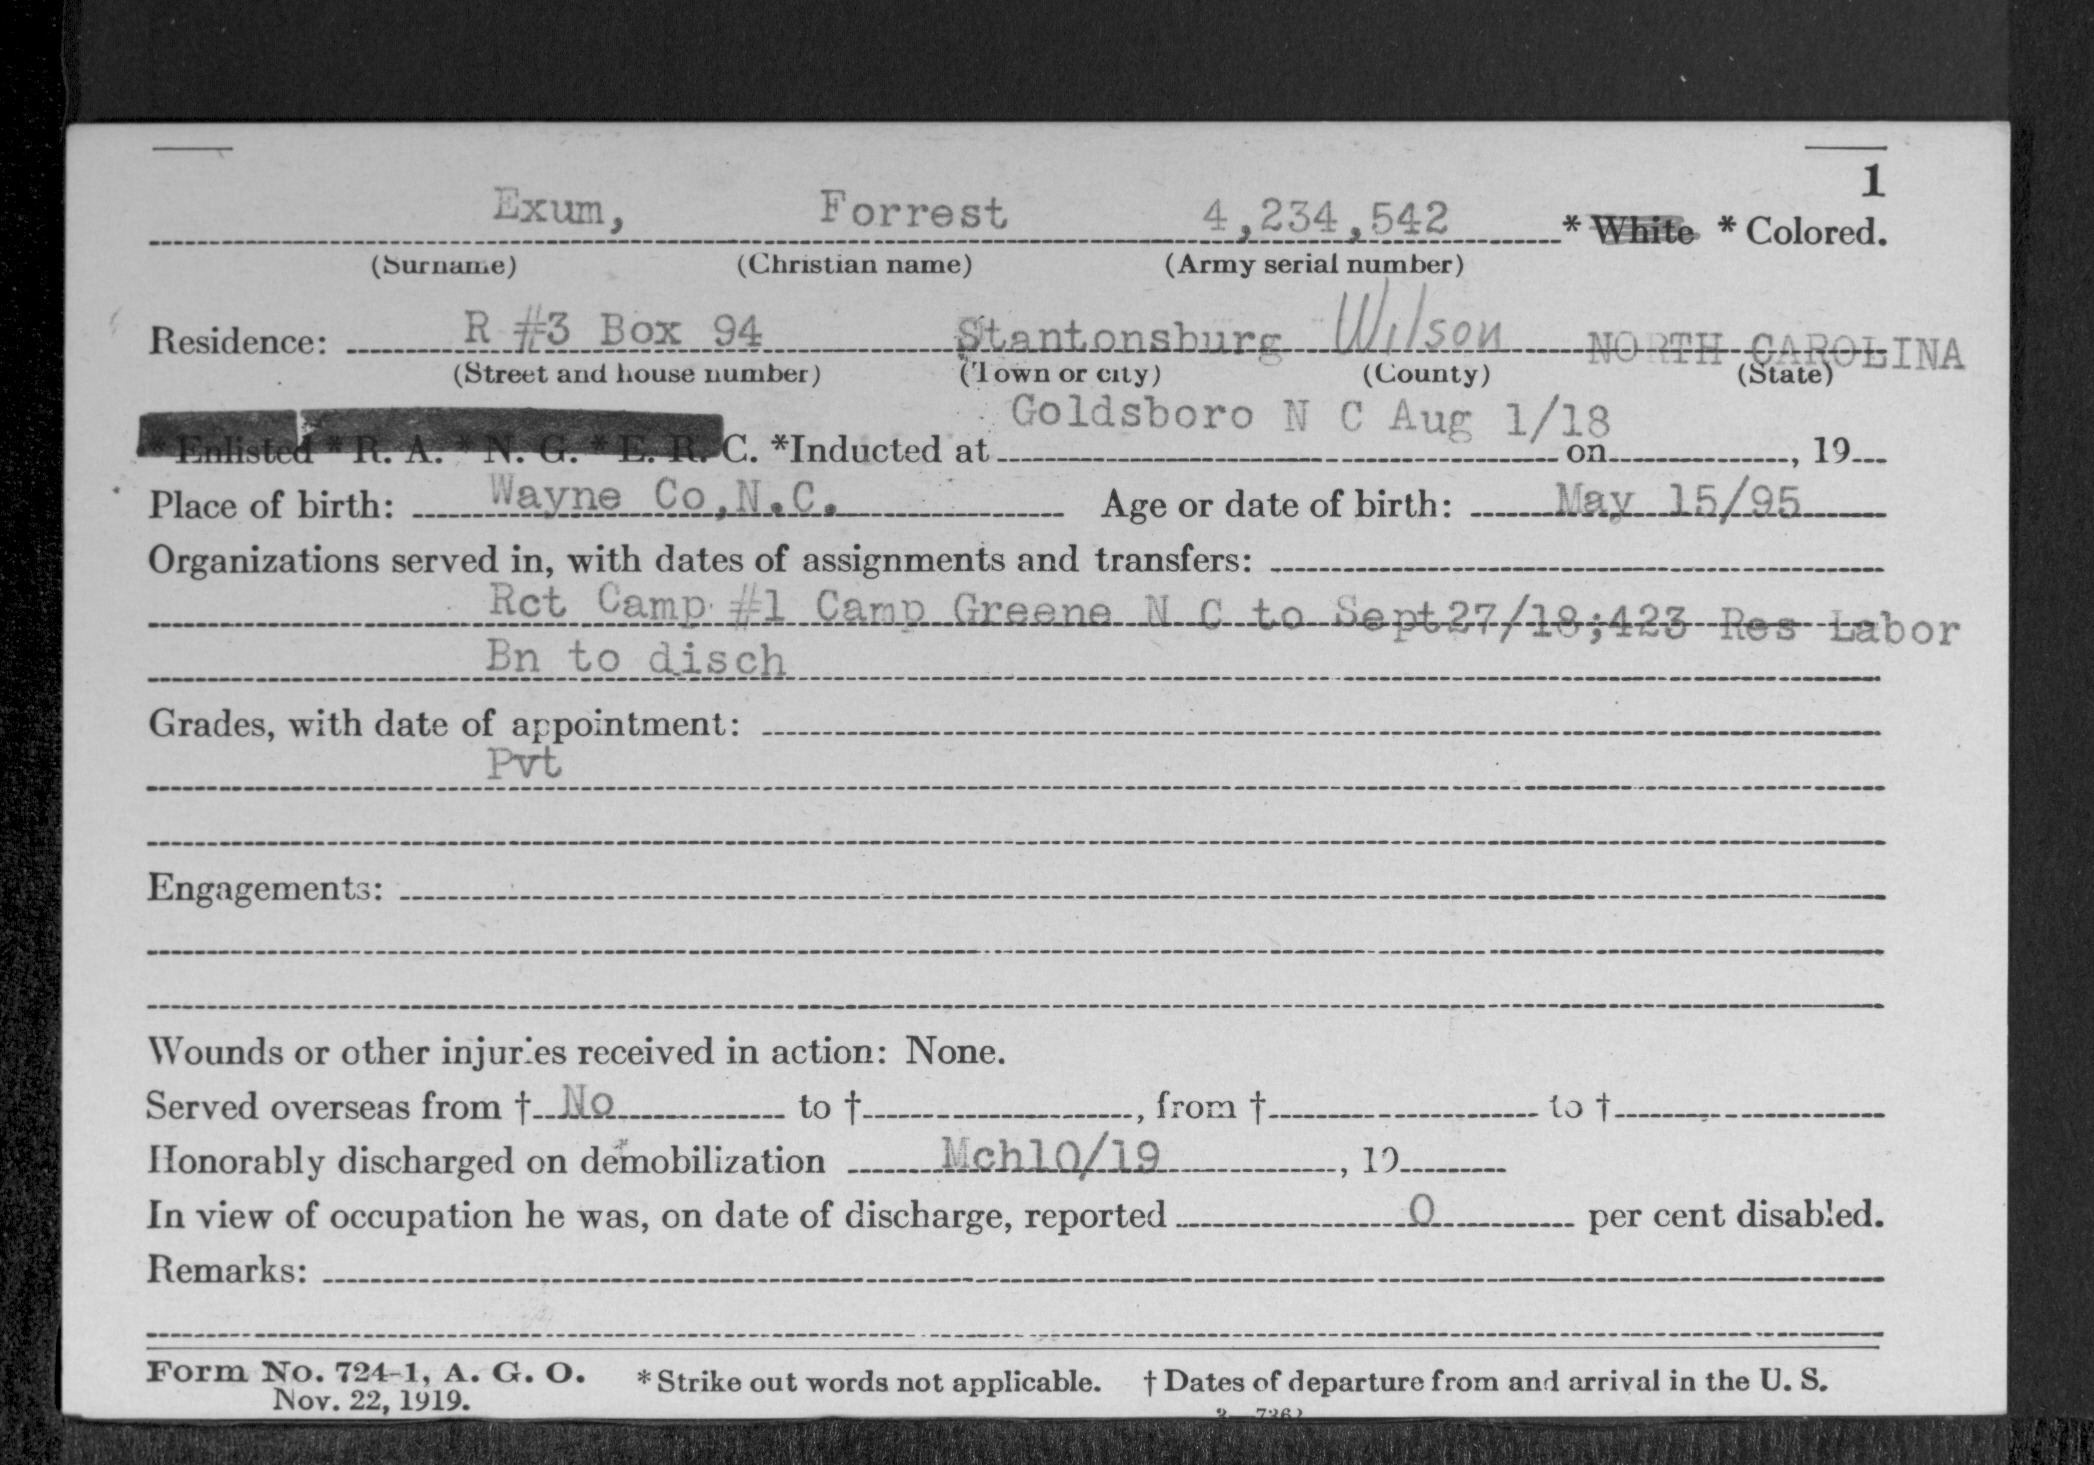 1
Exum, Forrest 4,234,542 * White * Colored.
(Surname) (Christian name) (Army serial number)
Residence: R #3 Box 94 Stantonsburg Wilson NORTH CAROLINA
(Street and house number) (Town or city) (County) (State)
Goldsboro N C Aug 1/18
* Enlisted * R. A. * N. G. * E. R. C. *Inducted at on , 19
Place of birth: Wayne Co,N.C. Age or date of birth: May 15/95
Organizations served in, with dates of assignments and transfers:
Rct Camp #1 Camp Greene N C to Sept27/18;423 Res Labor
Bn to disch
Grades, with date of appointment:
Pvt
Engagements:
Wounds or other injuries received in action: None.
Served overseas from † No to † , from † to †
Honorably discharged on demobilization Mch10/19 , 19
In view of occupation he was, on date of discharge, reported 0 per cent disabled.
Remarks:
Form No. 724-1, A. G. O. *Strike out words not applicable. † Dates of departure from and arrival in the U. S.
Nov. 22, 1919.